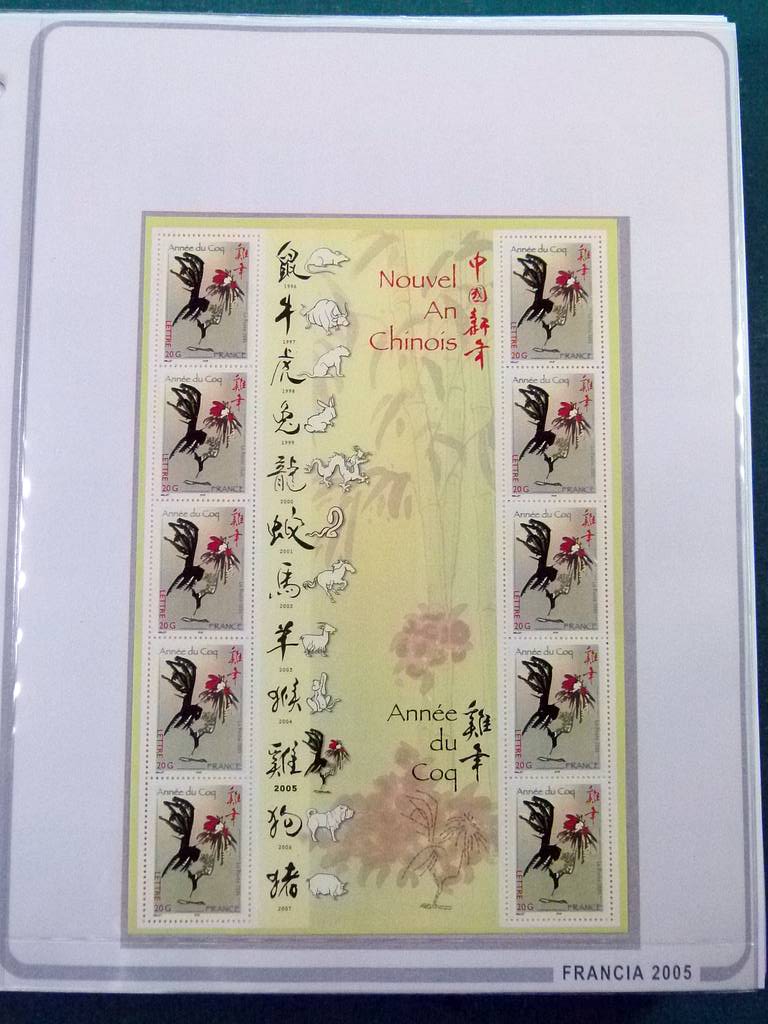 Année du Coq
雞年
LETTRE
20 G
FRANCE
Année du Coq
雞年
LETTRE
20 G
FRANCE
Année du Coq
雞年
LETTRE
20 G
FRANCE
Année du Coq
雞年
LETTRE
20 G
FRANCE
Année du Coq
雞年
LETTRE
20 G
FRANCE
鼠
1996
牛
1997
虎
1998
兔
1999
龍
2000
蛇
2001
馬
2002
羊
2003
猴
2004
雞
2005
狗
2006
猪
2007
Nouvel
An
Chinois
中國新年
Année
du
Coq
雞年
Année du Coq
雞年
LETTRE
20 G
FRANCE
Année du Coq
雞年
LETTRE
20 G
FRANCE
Année du Coq
雞年
LETTRE
20 G
FRANCE
Année du Coq
雞年
LETTRE
20 G
FRANCE
Année du Coq
雞年
LETTRE
20 G
FRANCE
FRANCIA 2005